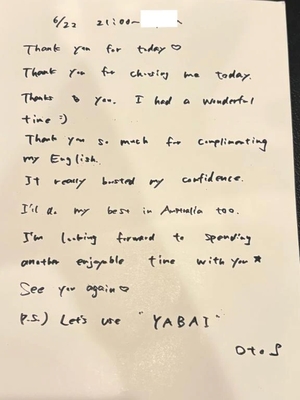 6/22 21:00~
Thank you for today♡
Thank you for chosing me today.
Thanks to you. I had a wonderful
time :)
Thank you so much for complimenting
my English.
It really boosted my confidence.
I'll do my best in Australia too.
I'm looking forward to spending
another enjoyable time with you★
See you again♡
P.S.) Let's use "YABAI"